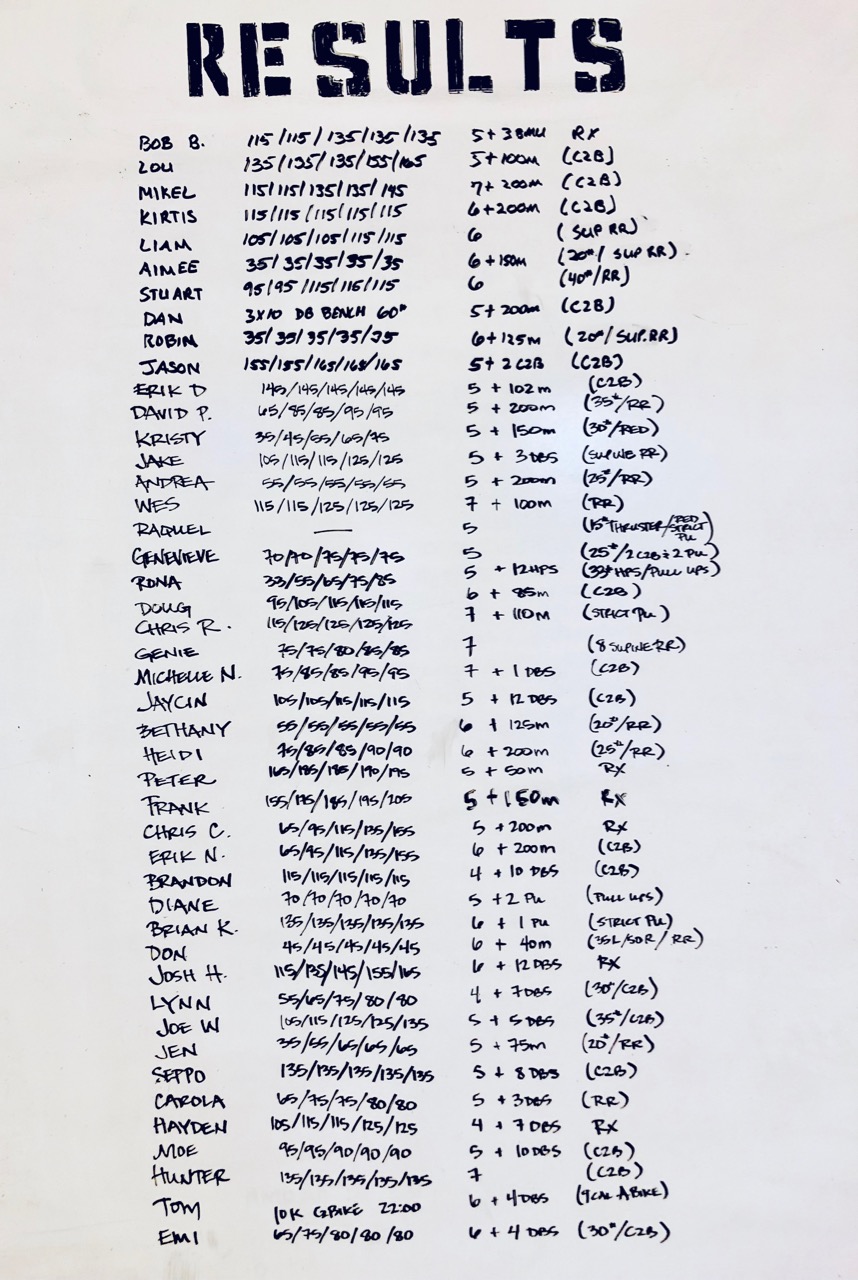 RESULTS
BOB B. 115/115/135/135/135 5+3BMU RX
LOU 135/135/135/155/165 5+100M (C2B)
MIKEL 115/115/135/135/145 7+200M (C2B)
KIRTIS 115/115/115/115/115 6+200M (C2B)
LIAM 105/105/105/115/115 6 (SUP RR)
AIMEE 35/35/35/35/35 6+150M (20#/SUP RR).
STUART 95/95/115/115/115 6 (40#/RR)
DAN 3X10 DB BENCH 60# 5+200M (C2B)
ROBIN 35/35/35/35/35 6+125M (20#/SUP.RR)
JASON 155/155/165/165/165 5+2C2B (C2B)
ERIK D 145/145/145/145/145 5 + 102M (C2B)
DAVID P. 65/85/85/95/95 5 + 200M (35#/RR)
KRISTY 35/45/55/65/75 5 + 150M (30#/RED)
JAKE 105/115/115/125/125 5 + 3 DBS (SUPINE RR)
ANDREA 55/55/55/55/55 5 + 200M (25#/RR)
WES 115/115/125/125/125 7 + 100M (RR)
RAQUEL — 5 (15# THRUSTER/RED STRICT PU)
GENEVIEVE 70/70/75/75/75 5 (25#/2 C2B+2 PU)
RONA 33/55/65/75/85 5 + 12HPS (33# HPS/PULL UPS)
DOUG 95/105/115/115/115 6 + 85M (C2B)
CHRIS R. 115/125/125/125/125 7 + 110M (STRICT PU)
GENIE 75/75/80/85/85 7 (8 SUPINE RR)
MICHELLE N. 75/85/85/95/95 7 + 1 DBS (C2B)
JAYCIN 105/105/115/115/115 5 + 12 DBS (C2B)
BETHANY 55/55/55/55/55 6 + 125M (20#/RR)
HEIDI 75/85/85/90/90 6 + 200M (25#/RR)
PETER 165/185/185/190/195 5 + 50M RX
FRANK 155/175/185/195/205 5 + 150M RX
CHRIS C. 65/95/115/135/155 5 + 200M RX
ERIK N. 65/95/115/135/155 6 + 200M (C2B)
BRANDON 115/115/115/115/115 4 + 10 DBS (C2B)
DIANE 70/70/70/70/70 5 + 2 PU (PULL UPS)
BRIAN K. 135/135/135/135/135 6 + 1 PU (STRICT PU)
DON 45/45/45/45/45 6 + 40M (35L/50R/RR)
JOSH H. 115/135/145/155/165 6 + 12 DBS RX
LYNN 55/65/75/80/80 4 + 7DBS (30#/C2B)
JOE W 105/115/125/125/135 5 + 5 DBS (35#/C2B)
JEN 35/55/65/65/65 5 + 75M (20#/RR)
SEPPO 135/135/135/135/135 5 + 8 DBS (C2B)
CAROLA 65/75/75/80/80 5 + 3DBS (RR)
HAYDEN 105/115/115/125/125 4 + 7 DBS RX
MOE 95/95/90/90/90 5 + 10DBS (C2B)
HUNTER 135/135/135/135/135 7 (C2B)
TOM 10K C2BIKE 22:00 6 + 4DBS (9 CAL A BIKE)
EMI 65/75/80/80/80 6 + 4 DBS (30#/C2B)